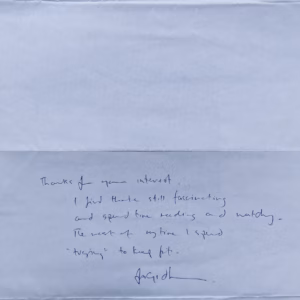 Thanks for your interest.
I find maths still fascinating
and spend time reading and watching.
The rest of my time I spend
"trying" to keep fit.